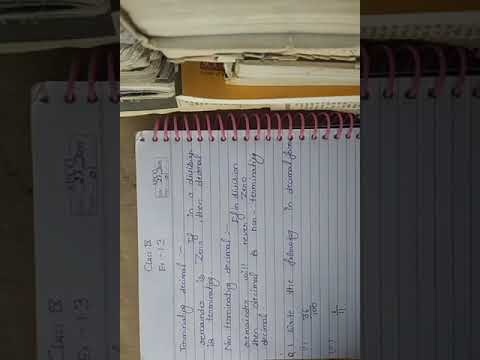 Class IX
Ex - 1.3
Terminating decimal :-
If in a division
remainder is Zero, then decimal
is terminating.
Non terminating decimal :- If in division
remainder will never Zero
then decimal is non-terminating
decimal
Q.1 Write the following in decimal form
36
100
1
11